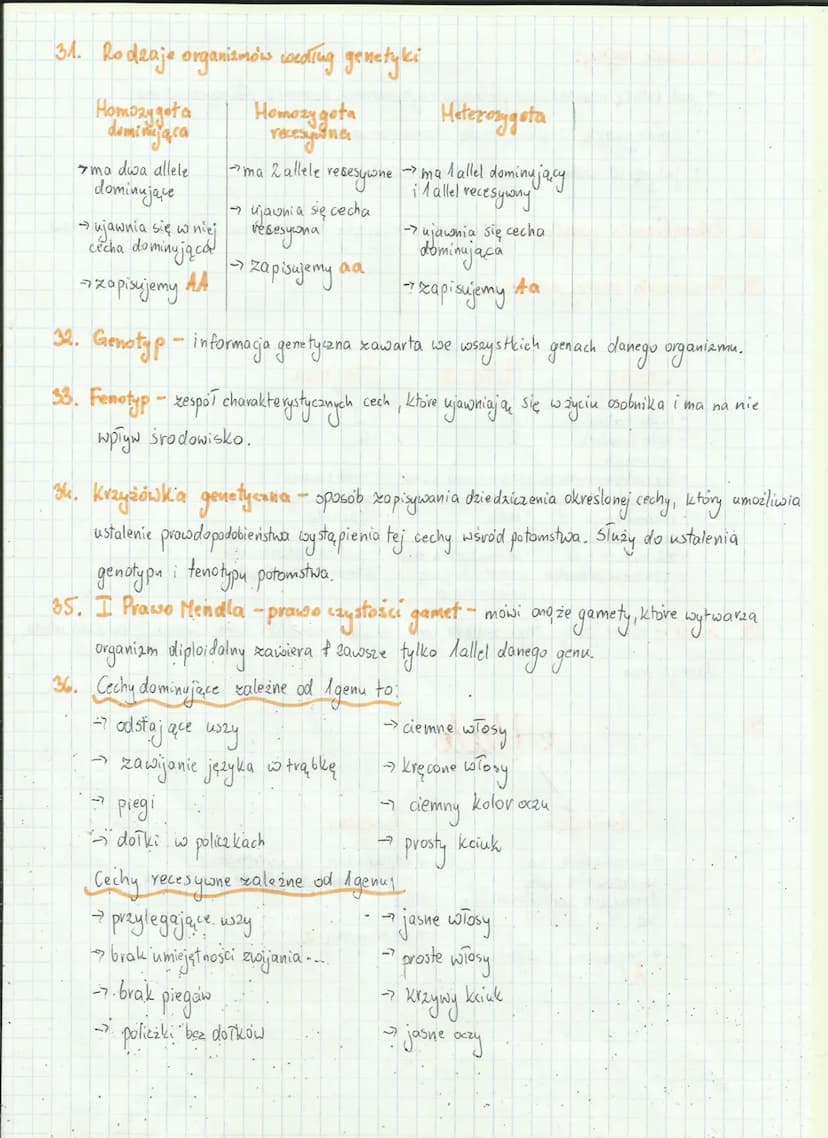 31. Rodzaje organizmów według genetyki
Homozygota
dominująca
→ ma dwa allele
dominujące
→ ujawnia się w niej
cecha dominująca
→ zapisujemy AA
Homozygota
recesywna
→ ma 2 allele recesywne
→ ujawnia się cecha
recesywna
→ zapisujemy aa
Heterozygota
→ ma 1 allel dominujący
i 1 allel recesywny
→ ujawnia się cecha
dominująca
→ zapisujemy Aa
32. Genotyp – informacja genetyczna zawarta we wszystkich genach danego organizmu.
33. Fenotyp – zespół charakterystycznych cech, które ujawniają się w życiu osobnika i ma na nie
wpływ środowisko.
34. Krzyżówka genetyczna – sposób zapisywania dziedziczenia określonej cechy, który umożliwia
ustalenie prawdopodobieństwa wystąpienia tej cechy wśród potomstwa. Służy do ustalenia
genotypu i fenotypu potomstwa.
35. I Prawo Mendla – prawo czystości gamet – mówi ono, że gamety, które wytwarza
organizm diploidalny zawiera zawsze tylko 1 allel danego genu.
36. Cechy dominujące zależne od 1 genu to:
→ odstające uszy
→ zawijanie języka w trąbkę
→ piegi
→ dołki w policzkach
→ ciemne włosy
→ kręcone włosy
→ ciemny kolor oczu
→ prosty kciuk
Cechy recesywne zależne od 1 genu
→ przylegające uszy
→ brak umiejętności zwijania...
→ brak piegów
→ policzki bez dołków
→ jasne włosy
→ proste włosy
→ krzywy kciuk
→ jasne oczy